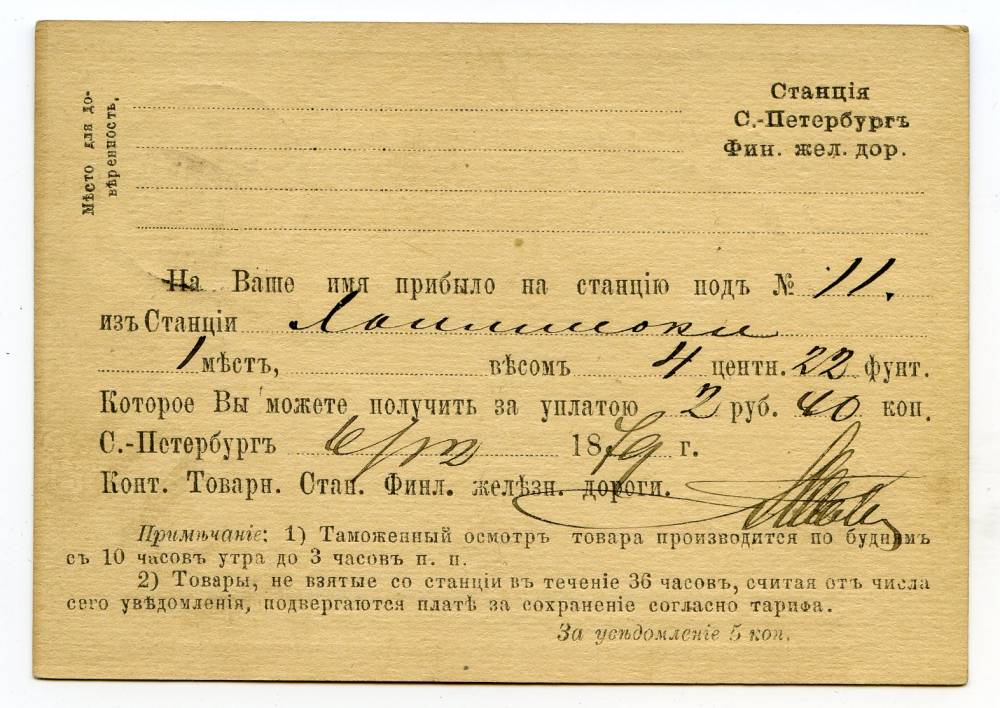 Мѣсто для до-
вѣренность.
Станція
С.-Петербургъ
Фин. жел. дор.
На Ваше имя прибыло на станцію подъ № 11.
изъ Станціи
1 мѣстъ, вѣсомъ 4 центн. 22 фунт.
Которое Вы можете получить за уплатою 2 руб. 40 коп.
С.-Петербургъ 1879 г.
Конт. Товарн. Стан. Финл. желѣзн. дороги.
Примѣчаніе: 1) Таможенный осмотръ товара производится по буднямъ
съ 10 часовъ утра до 3 часовъ п. п.
2) Товары, не взятые со станціи въ теченіе 36 часовъ, считая отъ числа
сего увѣдомленія, подвергаются платѣ за сохраненіе согласно тарифа.
За увѣдомленіе 5 коп.